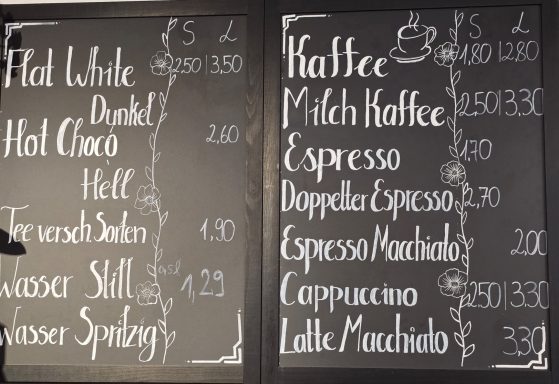 S L
Flat White 2,50 | 3,50
Dunkel
Hot Choco 2,60
Hell
Tee versch Sorten 1,90
Wasser Still 0,5l 1,29
Wasser Spritzig
S L
Kaffee 1,80 | 2,80
Milch Kaffee 2,50 | 3,30
Espresso 1,70
Doppelter Espresso 2,70
Espresso Macchiato 2,00
Cappuccino 2,50 | 3,30
Latte Macchiato 3,30